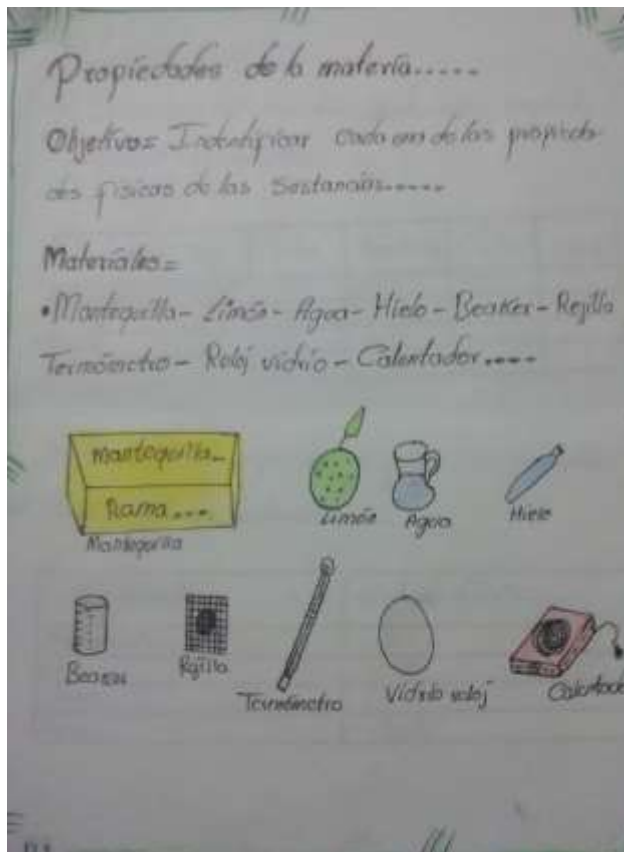 Propiedades de la matería.....
Objetivo= Indentificar cada una de las propieda
des fisicas de las Sustancias.....
Materiales=
•Mantequilla- Limón- Agua- Hielo- Beaker- Rejilla
Termómetro- Reloj vidrio- Calentador....
Mantequilla..
Rama....
Mantequilla
Limón Agua Hielo
Beaker Rejilla Termómetro Vidrio reloj Calentado